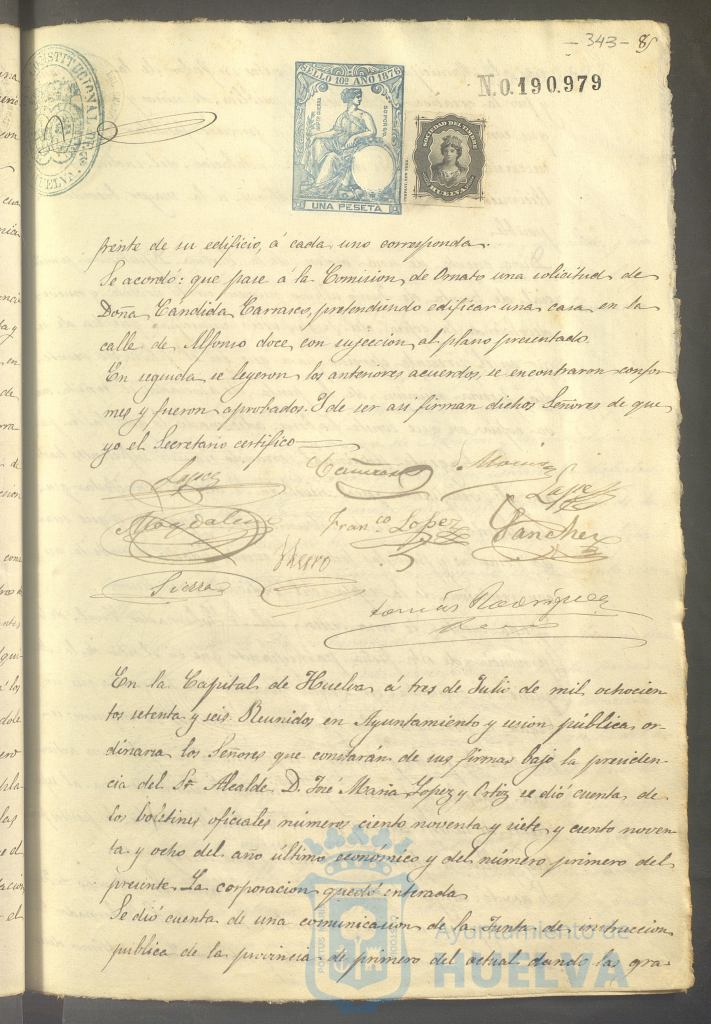 - 343 - 85
N.0.190.979
SELLO 10º AÑO 1876
UNA PESETA
SOCIEDAD DEL TIMBRE
HUELVA
CONSTITUCIONAL DE
HUELVA
frente de su edificio, á cada uno corresponda.
Se acordó: que pase á la Comision de Ornato una solicitud de
Doña Candida Carrasco, pretendiendo edificar una casa en la
calle de Alfonso doce con sujecion al plano presentado.
En seguida se leyeron los anteriores acuerdos, se encontraron confor-
mes y fueron aprobados. Y de ser asi firman dichos Señores de que
yo el Secretario certifico
Lopez
Lopez
Franco Lopez Sanchez
Sierra
Tomás Rodriguez
En la Capital de Huelva á tres de Julio de mil ochocien
tos setenta y seis. Reunidos en Ayuntamiento y sesion pública or-
dinaria los Señores que constarán de sus firmas bajo la presiden-
cia del Sr. Alcalde D. José Maria Lopez y Ortiz se dió cuenta de
los boletines oficiales números ciento noventa y siete y ciento noven-
ta y ocho del año último económico y del número primero del
presente. La corporacion quedó enterada
Se dió cuenta de una comunicacion de la Junta de instruccion
publica de la provincia de primero del actual dando las gra-
Ayuntamiento de
HUELVA